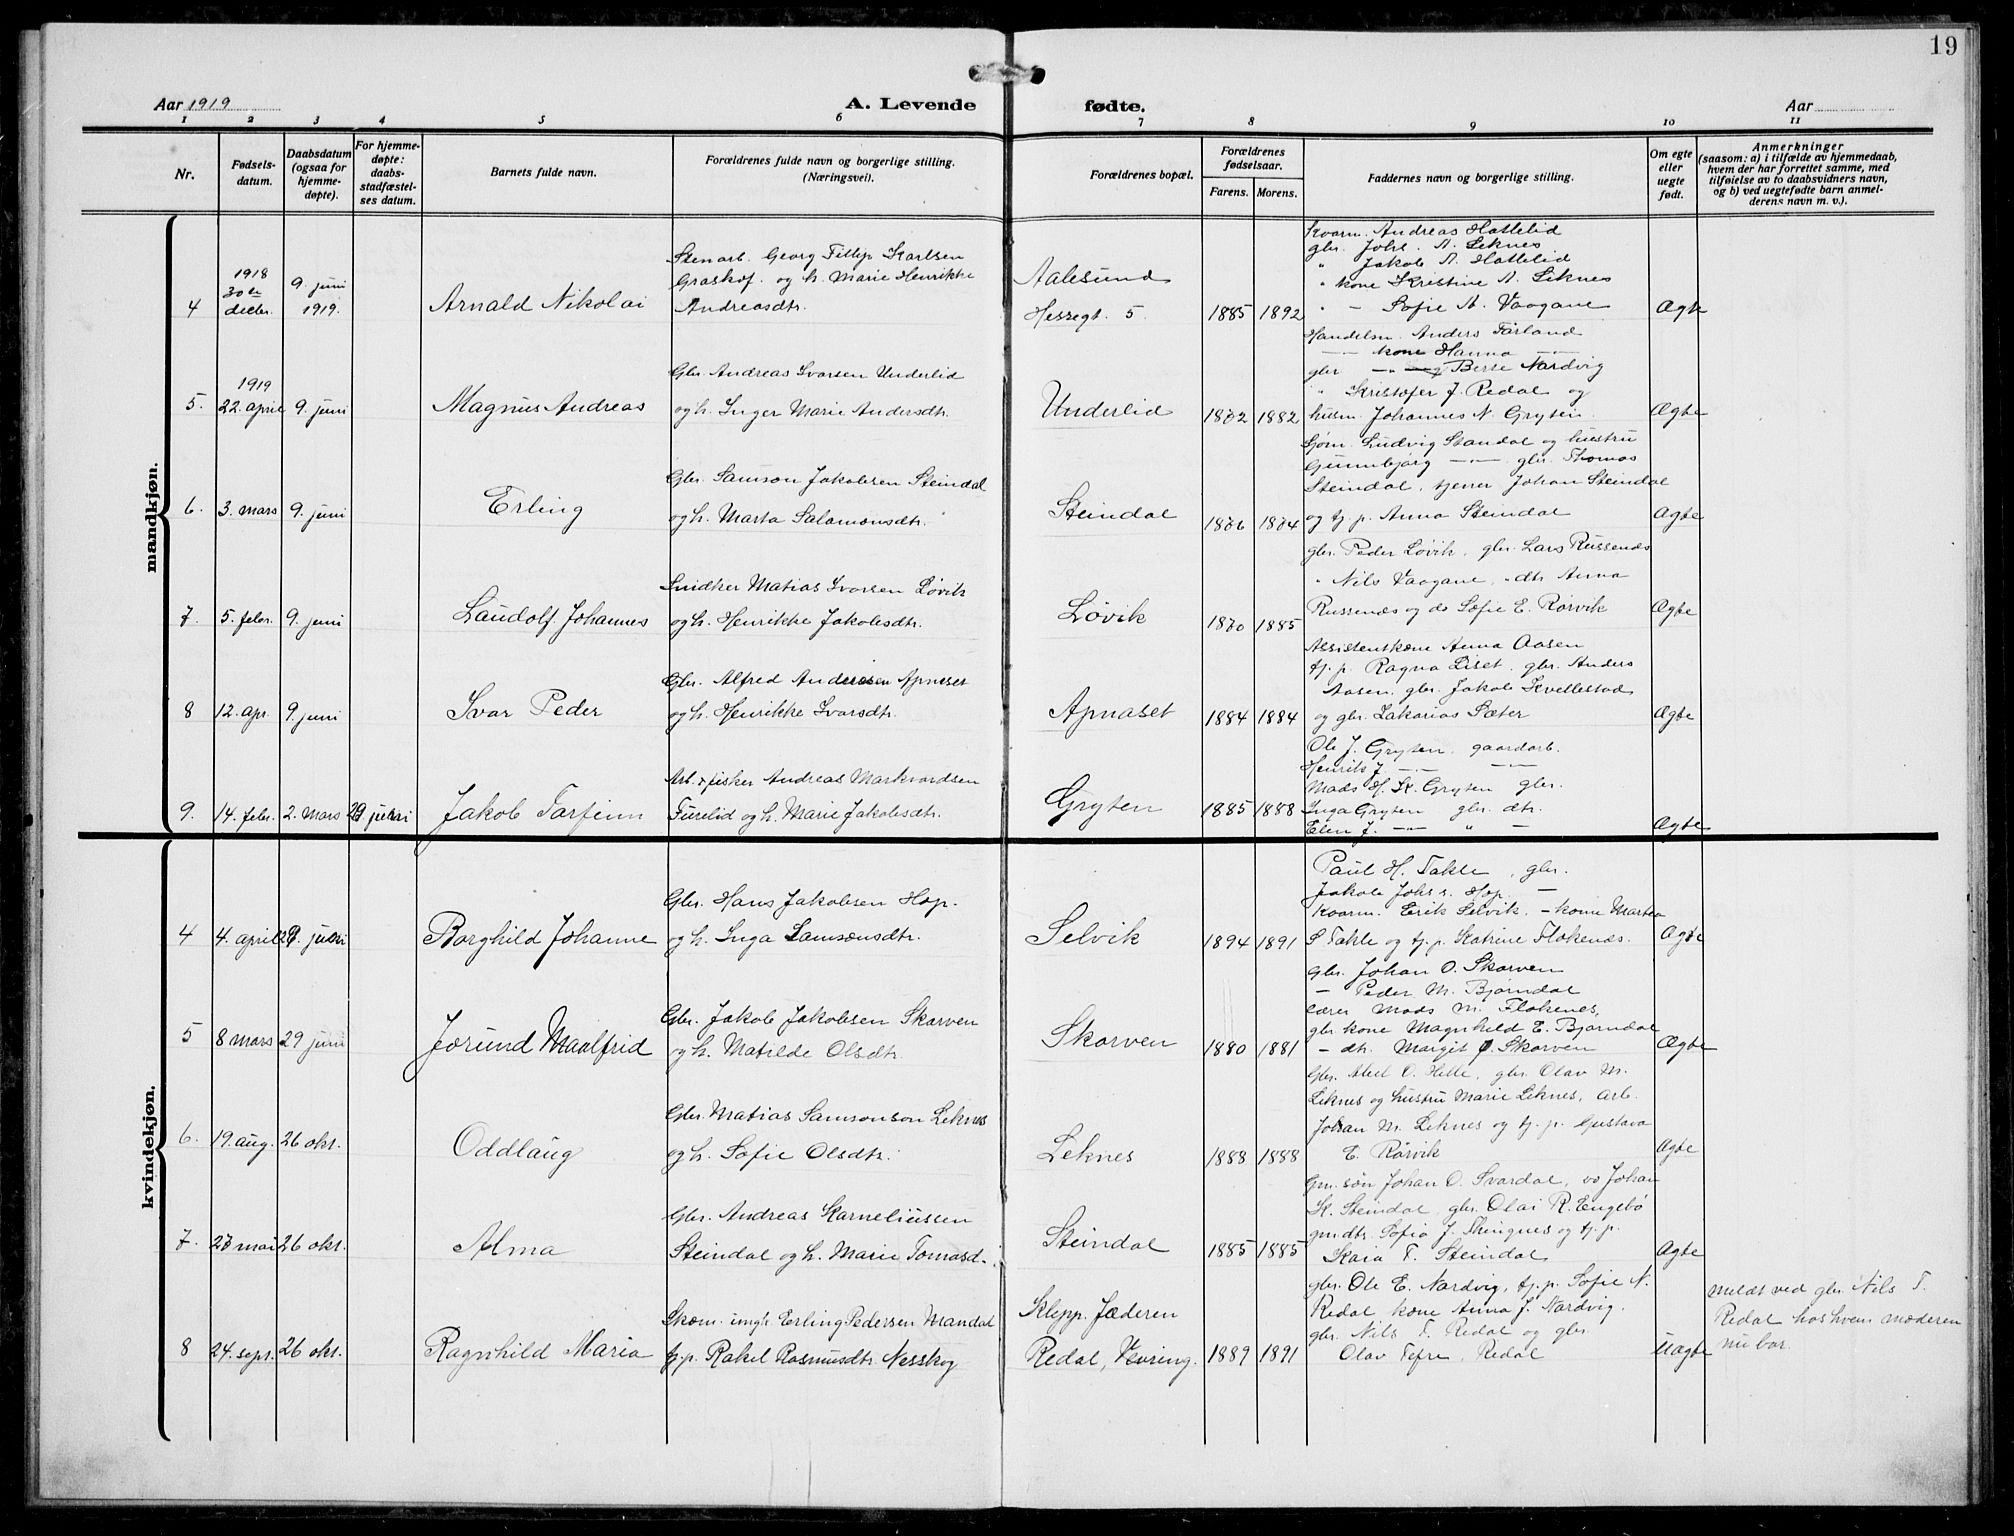 19
Aar 1919
A. Levende fødte.
Aar
1 2 3 4 5 6 7 8 9 10 11
Nr.
Fødsels-
datum.
Daabsdatum
(ogsaa for
hjemme-
døpte).
For hjemme-
døpte:
daabs-
stadfæstel-
ses datum.
Barnets fulde navn.
Forældrenes fulde navn og borgerlige stilling.
(Næringsvei).
Forældrenes bopæl.
Forældrenes
fødselsaar.
Farens. Morens.
Faddernes navn og borgerlige stilling.
Om egte
eller
uegte
født.
Anmerkninger
(saasom: a) i tilfælde av hjemmedaab,
hvem der har forrettet samme, med
tilføielse av to daabsvidners navn,
og b) ved uegtefødte barn anmel-
derens navn m. v.).
mandkjøn.
4
1918
30te
decbr.
9. juni
1919.
Arnald Nikolai
Stenarb. Georg Fillip Karlsen
Graskof. og h. Marie Henrikke
Andreasdtr.
Aalesund
Hessegt. 5.
1885 1892
Kvarm. Andreas Hattelid
gbr. Johs. A. Leknes
" Jakob A. Hattelid
" kone Kristine A. Leknes
" — Sofie A. Vaagane
Ægte
5.
1919
22. april
9. juni
Magnus Andreas
Gbr. Andreas Ivarsen Underlid
og h. Inger Marie Andersdtr.
Underlid
1872 1882
Handelsm. Anders Førland
—"— kone Hanna —"—
gbr —"— Berte Nordvig
" Kristofer J. Redal og
husm. Johannes N. Gryten.
Ægte
6.
3. mars
9. juni
Erling
Gbr. Samson Jakobsen Steindal
og h. Marta Salamonsdtr.
Steindal
1876 1874
Gjørn. Ludvig Standal og hustru
Gunnbjørg —"— gbr. Thomas
Steindal, tjener Johan Steindal
og tj. p. Anna Steindal
Ægte
7.
5. febr.
9. juni
Laudolf Johannes
Snidker Matias Ivarsen Løvik
og h. Henrikke Jakobsdtr.
Løvik
1870 1885
gbr. Peder Løvik, gbr. Lars Russenes
" Nils Vaagane, " dtr. Anna
Russenes og do Sofie E. Rørvik
Ægte
8
12. apr.
9. juni
Ivar Peder
Gbr. Alfred Andersen Apneset
og h. Henrikke Ivarsdtr.
Apnaset
1884 1884
Assistentkone Anna Aasen
tj. p. Ragna Liset, gbr. Anders
Aasen, gbr. Jakob Kvellestad
og gbr. Sakarias Sæter
Ægte
9.
14. febr.
2. mars
29 juni
Jakob Torfinn
Arb. & fisker Andreas Markvardsen
Furelid og h. Marie Jakobsdtr.
Gryten
1885 1888
Ole J. Gryten, gaardarb.
Henrik J —"— —"—
Mads H. K. Gryten gbr.
Inga Gryten gbr. dtr.
Elen J. —"— " —
Ægte
kvindekjøn.
4
4. april
29. juni
Borghild Johanne
Gbr. Hans Jakobsen Hop.
og h. Inga Samsonsdtr.
Selvik
1894 1891
Paul H. Takle, gbr.
Jakob Johs s. Hop, —
Kvarm. Erik Selvik, — kone Martea
S Takle og tj. p. Katrine Flokenes.
Ægte
5
8 mars
29 juni
Jorund Maalfrid
Gbr. Jakob Jakobsen Skorven
og h. Matilde Olsdtr.
Skorven
1880 1881
gbr. Johan O. Skorven
— Peder M. Bjørndal
lærer Mads M. Flokenes,
gbr kone Magnhild E. Bjørndal
— dtr. Margit O. Skorven
Ægte
6.
19. aug.
26 okt.
Oddlaug
Gbr. Matias Samsonson Leknes
og h. Sofie Olsdtr.
Leknes
1888 1888
Gbr. Abel O. Helle, gbr. Olav M.
Leknes og hustru Marie Leknes, arb.
Johan M. Leknes og tj. p. Gustava
E. Rørvik
Ægte
7.
27 mai
26 okt.
Alma
Gbr. Andreas Karneliussen
Steindal og h. Marie Tomasd.
Steindal
1885 1885
gm. søn Johan O. Svardal, do Johan
K. Steindal, gbr. Olai R. Engebø
gm dtr. Sofia J. Thingnes og tj. p.
Kaia T. Steindal
Ægte
8
24. sept.
26 okt.
Ragnhild Maria
Skom. ungk. Erling Pedersen Mandal
tj. p. Rakel Rasmusdtr. Nesskog
Klepp. Jæderen
Redal, Vevring.
1889 1891
gbr. Ole E. Nordvig, tj. p. Sofie N.
Redal kone Anna J. Nordvig.
gbr. Nils T. Redal og gbr.
Olav Tefre, Redal
Uægte
meldt ved gbr. Nils T.
Redal hos hvem moderen
nu bor.